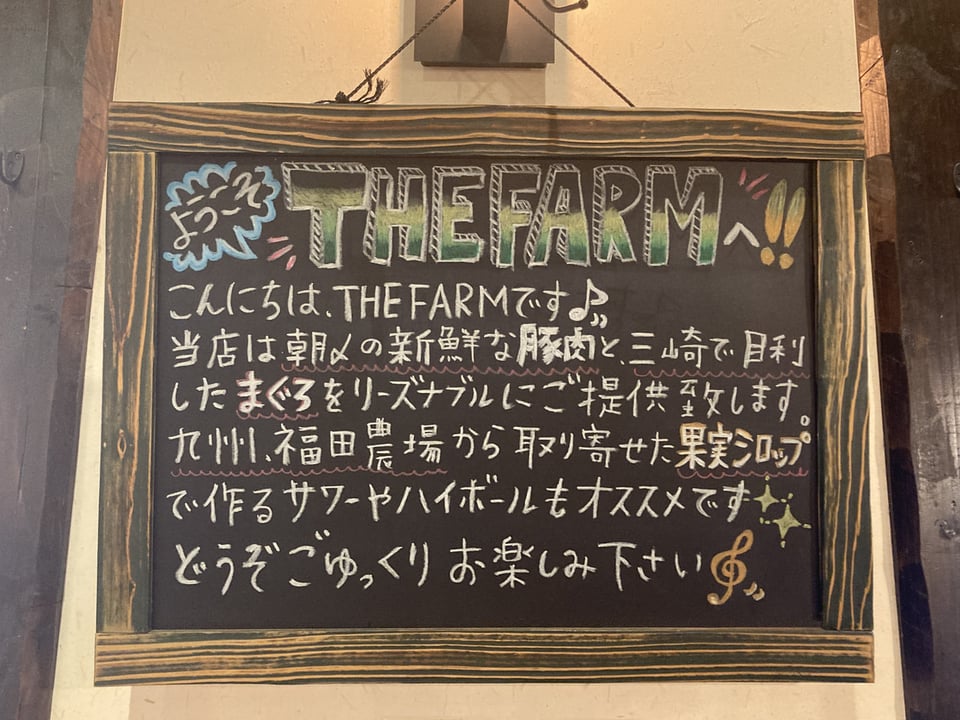 ようこそ THE FARM へ!!
こんにちは、THE FARMです♪
当店は朝〆の新鮮な豚肉と、三崎で目利
したまぐろをリーズナブルにご提供致します。
九州、福田農場から取り寄せた果実シロップ
で作るサワーやハイボールもオススメです
どうぞごゆっくりお楽しみ下さい